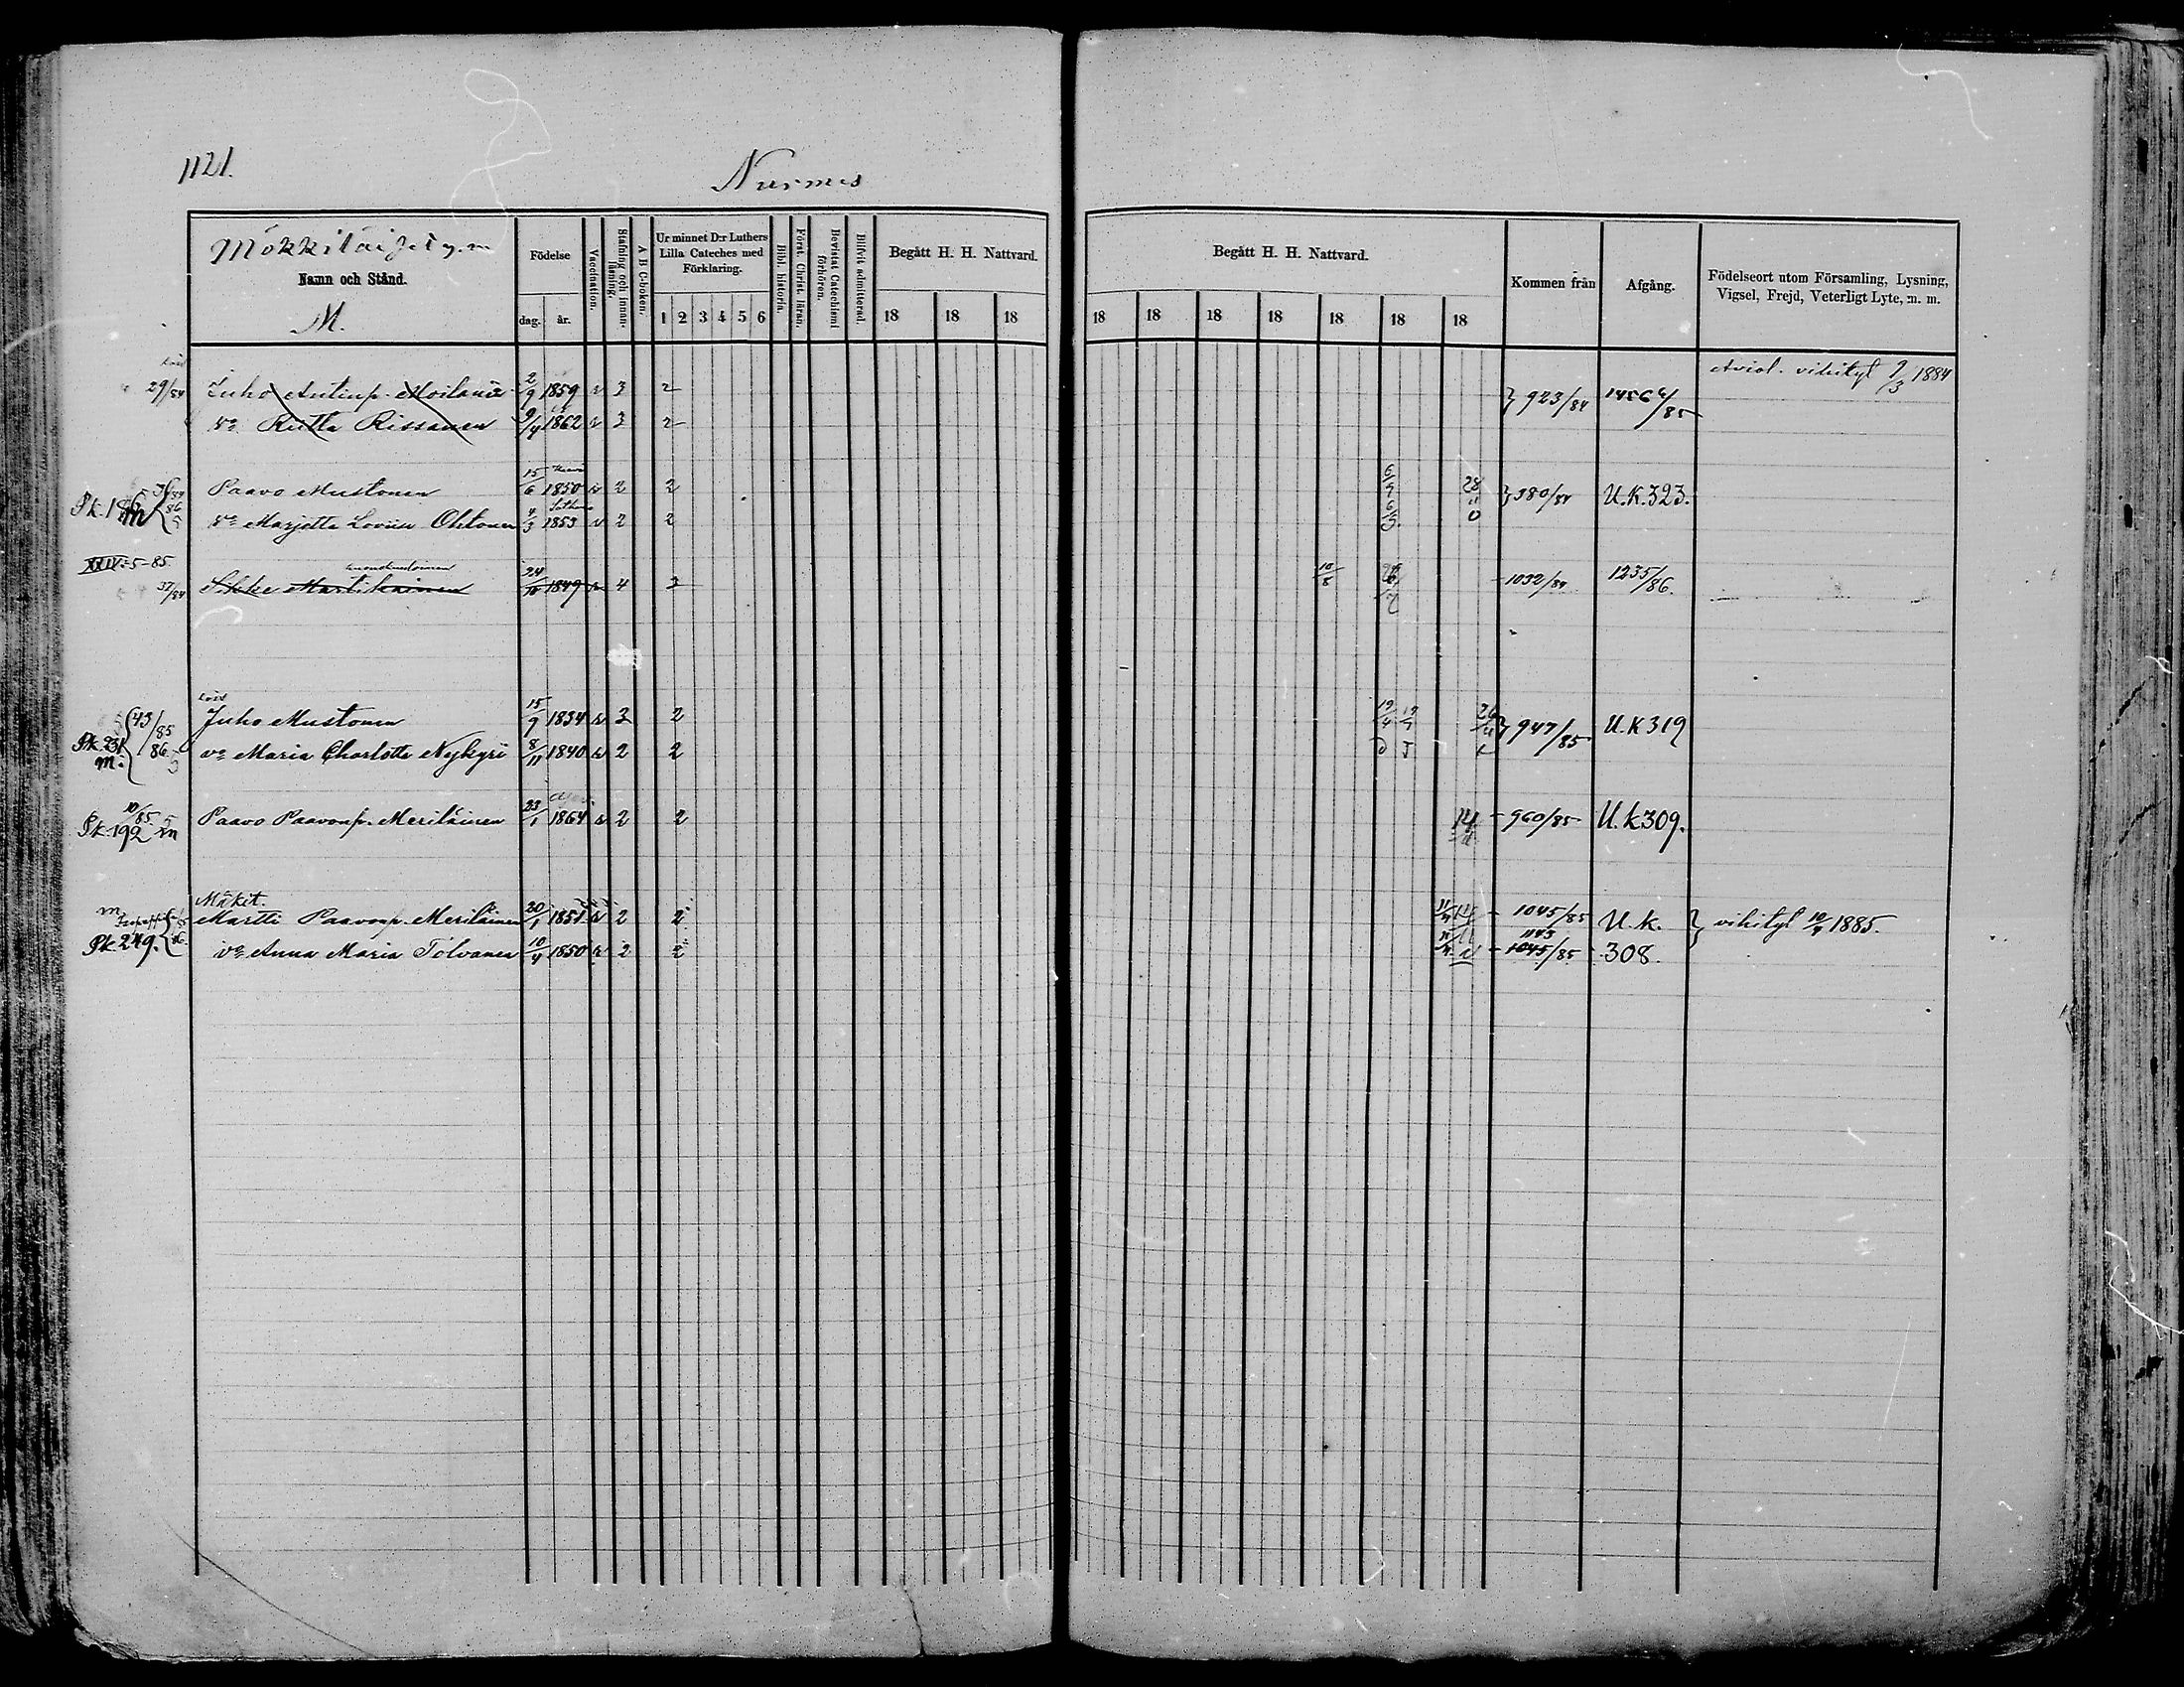 1121.
Nurmes
Mökkiläiset y.m
Namn och Stånd.
M.
Födelse
dag. år.
Vaccination.
Stafning och innanläsning.
A B C-boken.
Ur minnet D:r Luthers Lilla Cateches med Förklaring.
1 2 3 4 5 6
Bibl. historia.
Först. Christ. läran.
Bevistat Catechismi förhören.
Blifvit admitterad.
Begått H. H. Nattvard.
18 18 18
Begått H. H. Nattvard.
18 18 18 18 18 18 18
Kommen från
Afgång.
Födelseort utom Församling, Lysning, Vigsel, Frejd, Veterligt Lyte, m. m.
Aviol. vihityt 9/3 1884
29/84 Juho Antinp. Moilanen 2/9 1859 v 3 2 923/84
vo Riitta Rissanen 9/4 1862 v 3 2 /85
Pk. 186 m Paavo Mustonen 15/6 1850 v 2 2 6/7 28 980/84 U.K. 323.
vo Marjetta Loviisa Ohtonen 4/3 1853 v 2 2
XXIV-5-85.
37/84 Martikainen 24/10 1849 4 2 10/8 1032/84 1235/86.
Pk. 231 m: 43/85 86 Juho Mustonen 15/9 1834 v 3 2 19/4 947/85 U.K 319
vo Maria Charlotta Nykyri 8/11 1840 v 2 2
10/85
Pk. 192 m Paavo Paavonp. Meriläinen 23/1 1864 v 2 2 14 960/85 U.K 309.
Mäkit.
m Martti Paavonp. Meriläinen 20/1 1851 v 2 2 1045/85 U.K. vihityt 10/4 1885.
Pk. 249. vo Anna Maria Tolvanen 10/4 1850 v 2 2 1143 1045/85 308.